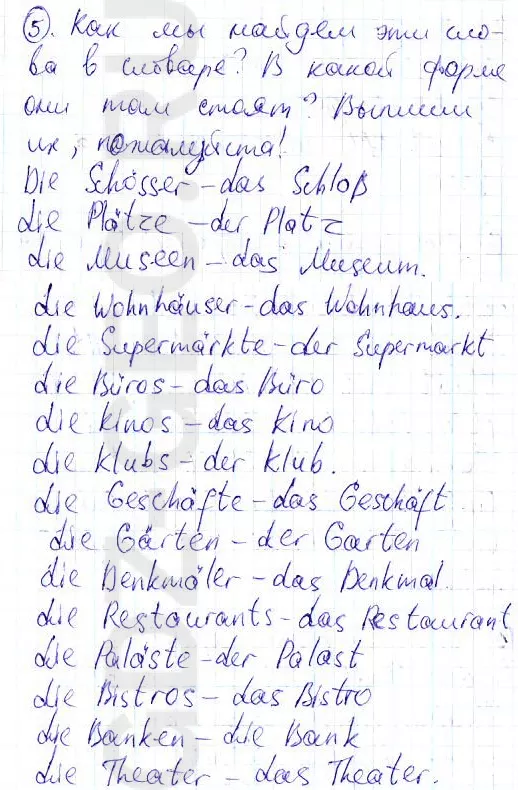 ⑤. Как мы найдем эти сло-
ва в словаре? В какой форме
они там стоят? Выпиши
их, пожалуйста!
Die Schösser – das Schloß
die Plätze – der Platz
die Museen – das Museum.
die Wohnhäuser – das Wohnhaus.
die Supermärkte – der Supermarkt
die Büros – das Büro
die Kinos – das Kino
die Klubs – der Klub.
die Geschäfte – das Geschäft
die Gärten – der Garten
die Denkmäler – das Denkmal.
die Restaurants – das Restaurant
die Paläste – der Palast
die Bistros – das Bistro
die Banken – die Bank
die Theater – das Theater.
GDZ-GEO.RU